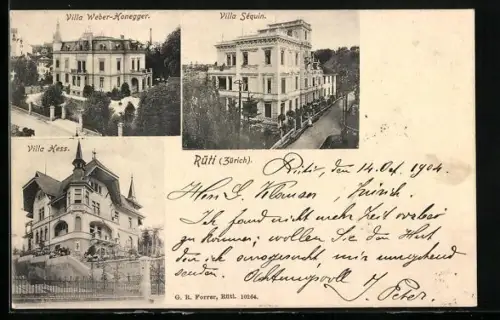 Villa Weber-Honegger.
Villa Séquin.
Villa Hess.
Rüti (Zürich).
Rüti, den 14. Oct. 1904
Herr S. Klauser, Zürich.
Ich fand nicht mehr Zeit vorbei
zu kommen; wollen Sie den Hut
den ich ausgesucht, mir umgehend
senden. Achtungsvoll J. Peter.
G. R. Forrer, Rüti. 10264.